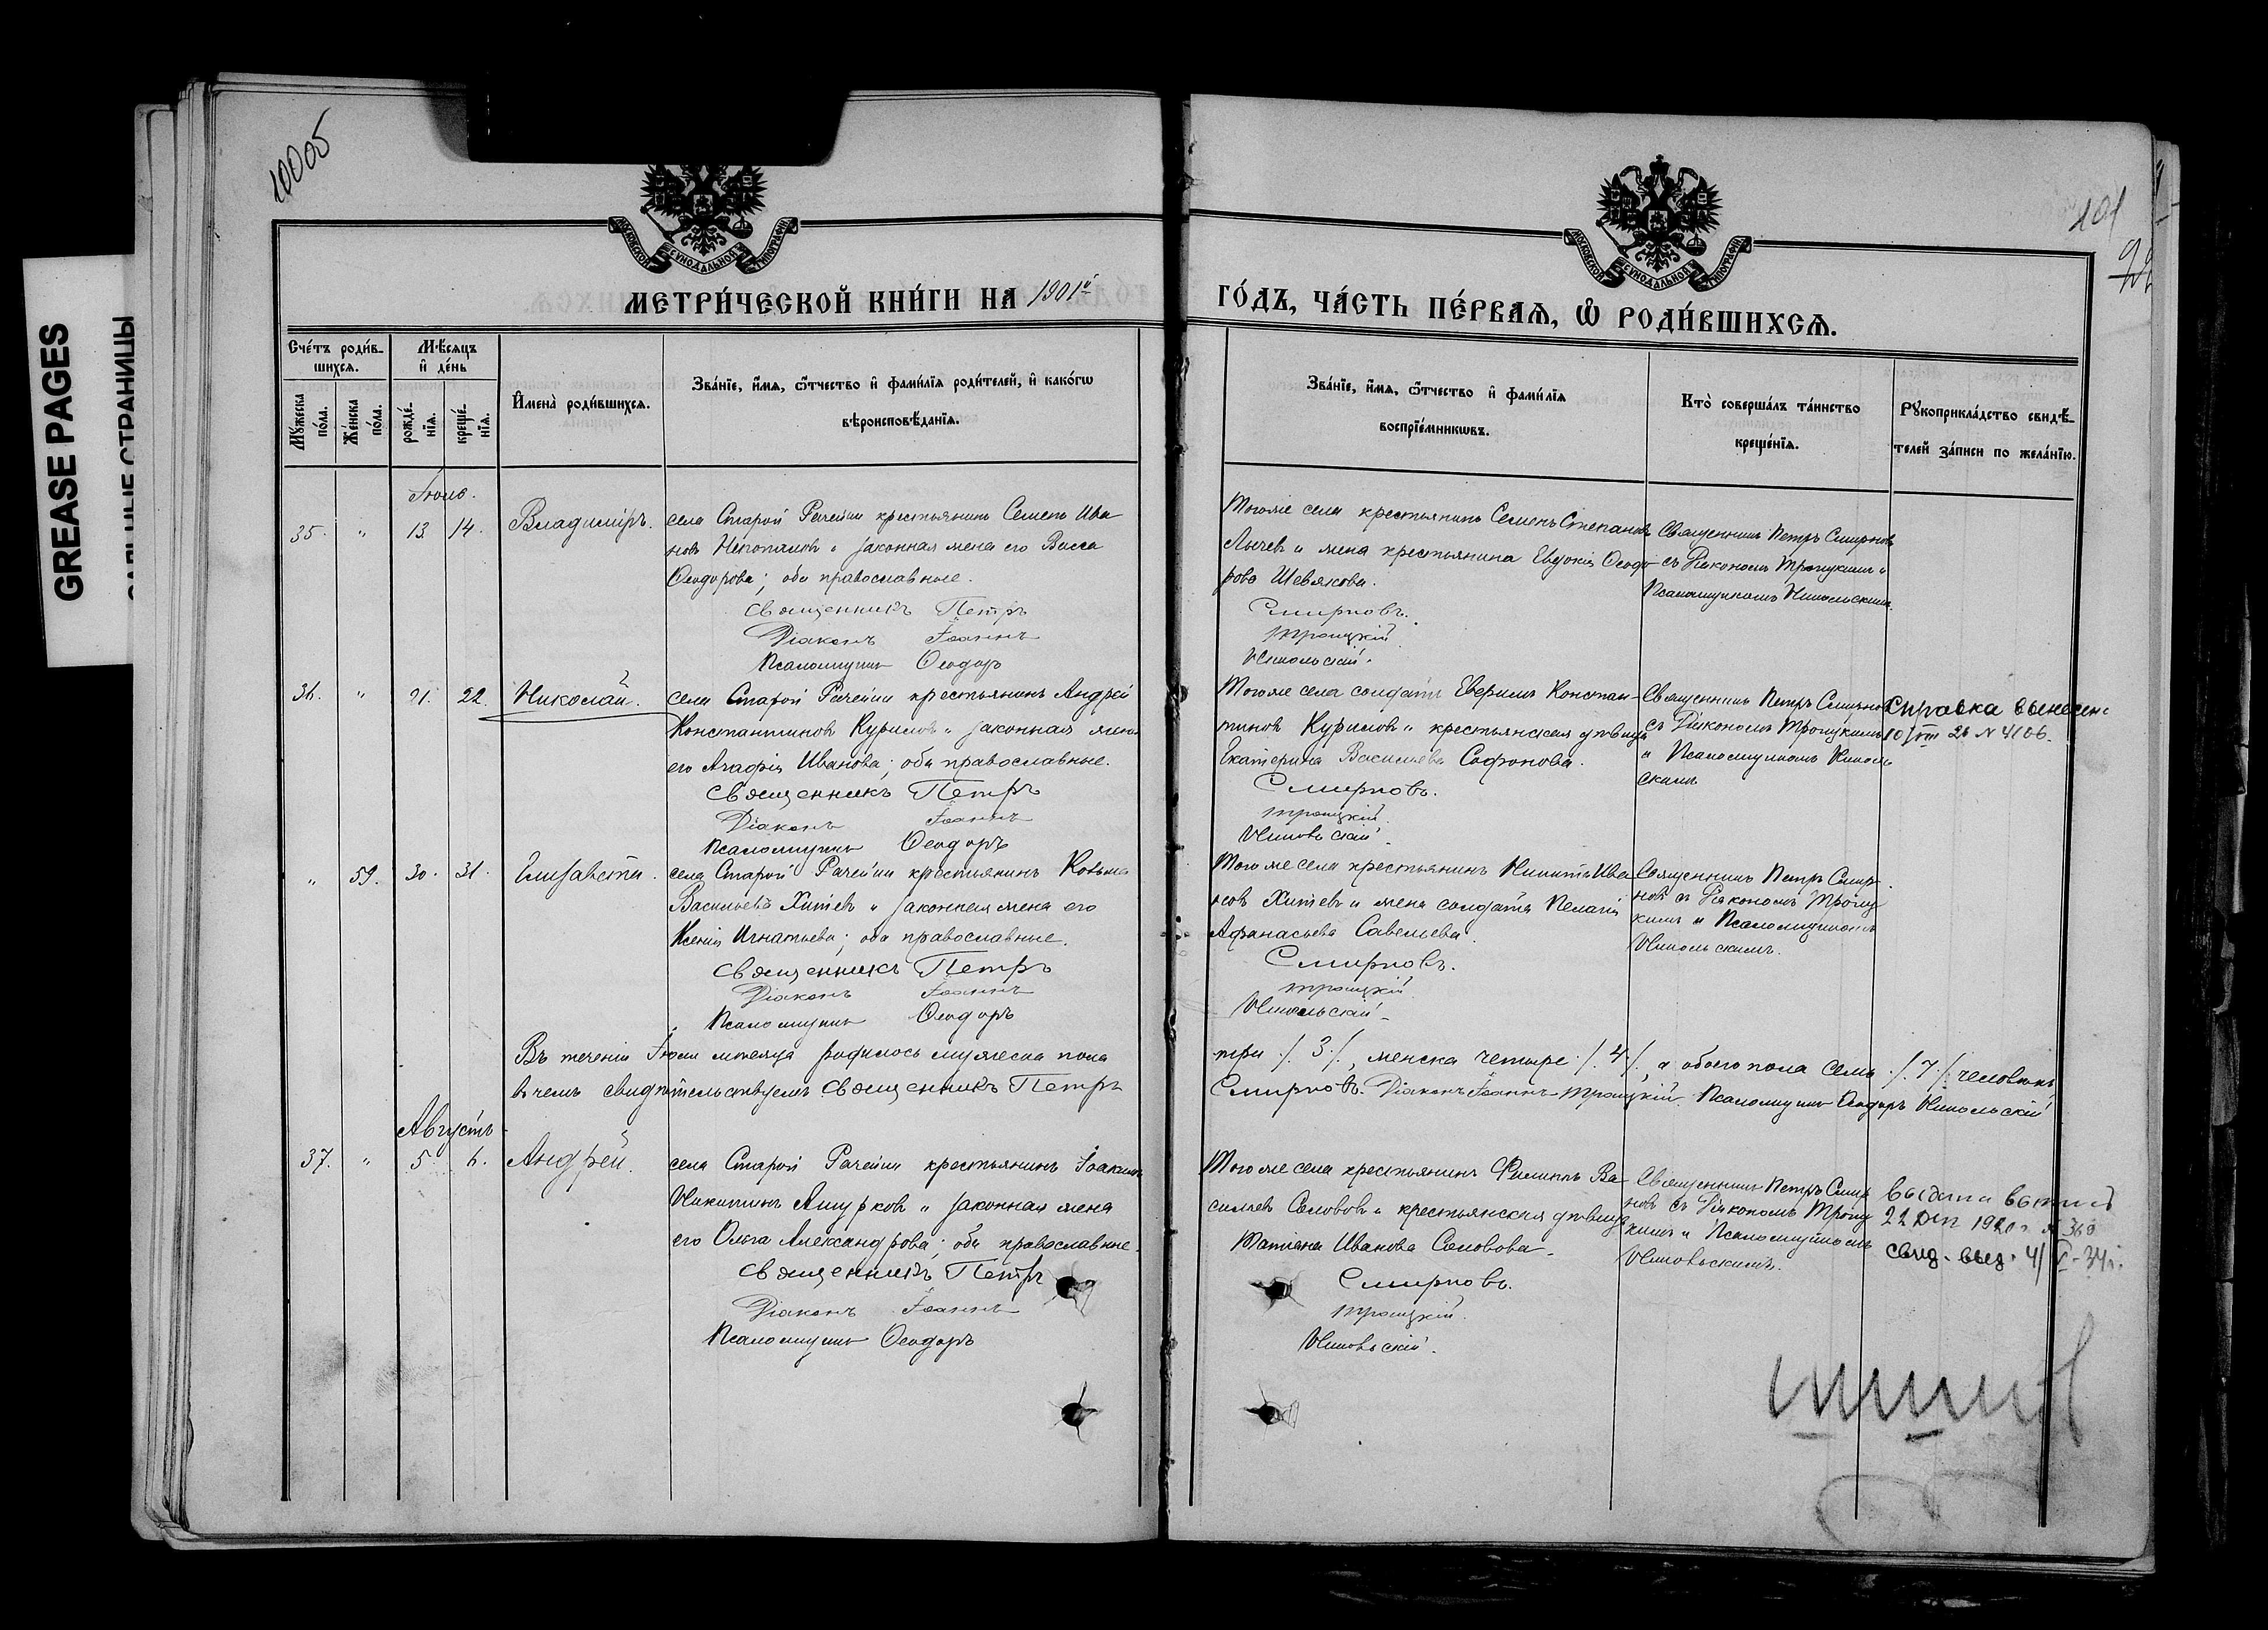 GREASE PAGES
100об
101
МОСКОВСКОЙ СѴНОДАЛЬНОЙ ТИПОГРАФІИ
МОСКОВСКОЙ СѴНОДАЛЬНОЙ ТИПОГРАФІИ
МЕТРИ́ЧЕСКОЙ КНИ́ГИ НА 1901й ГО́ДЪ, ЧА́СТЬ ПЕ́РВАѦ, Ѡ РОДИ́ВШИХСѦ.
Сче́тъ роди́в-
шихсѧ.
Мѣ́сѧцъ
и҆ де́нь
Мꙋ́жеска
по́ла.
Же́нска
по́ла.
рожде́-
нїѧ.
креще́-
нїѧ.
И҆мена̀ роди́вшихсѧ.
Зва́нїе, и҆́мѧ, ѻ҆́тчество и҆ фами́лїѧ роди́телей, и҆ како́гѡ
вѣроисповѣ́данїѧ.
Зва́нїе, и҆́мѧ, ѻ҆́тчество и҆ фами́лїѧ
воспрїе́мникѡвъ.
Кто̀ соверша́лъ та́инство
креще́нїѧ.
Рꙋкоприкла́дство свидѣ́-
телей за́писи по жела́нїю.
Іюль.
35. " 13. 14. Владиміръ.
села Старой Рачейки крестьянинъ Семенъ Ива
новъ Непопалов и законная жена его Васса
Ѳеодорова; оба православные.
Священникъ Петръ
Діаконъ Іоаннъ
Псаломщикъ Ѳеодоръ
Тогоже села крестьянинъ Семенъ Степановъ
Лычев и жена крестьянина Евдокія Ѳеодо-
рова Шевякова.
Смирновъ.
Троицкій
Никольскій.
Священникъ Петръ Смирновъ
съ Діакономъ Троицкимъ и
Псаломщикомъ Никольскимъ.
36. " 21. 22. Николай.
села Старой Рачейки крестьянинъ Андрей
Константинов Курилов и законная жена
его Агафія Иванова; оба православные.
Священникъ Петръ
Діаконъ Іоаннъ
Псаломщикъ Ѳеодоръ
Тогоже села солдатъ Константинов Курилов и крестьянская дѣвица
Екатерина Васильева Софонова.
Смирновъ.
Троицкій.
Никольскій.
Священникъ Петръ Смирновъ
съ Діакономъ Троицкимъ
и Псаломщикомъ Николь
скимъ
Справка вынесен
10/VIII 26 N 4106.
" 59. 30. 31. Елисавета.
села Старой Рачейки крестьянинъ Козьма
Васильевъ Хитев и законная жена его
Ксенія Игнатьева; оба православные.
Священникъ Петръ
Діаконъ Іоаннъ
Псаломщикъ Ѳеодоръ
Тогоже села крестьянинъ Никита Ива
нов Хитевъ и жена солдата Пелагія
Афанасьева Савельева.
Смирновъ.
Троицкій
Никольскій
Священникъ Петръ Смир-
новъ съ Діакономъ Троиц
кимъ и Псаломщикомъ
Никольскимъ.
Въ теченіи Іюля мѣсяца родилось мужеска пола три /.3./, женска четыре /.4./, а обоего пола семь /.7./ человѣкъ
въ чемъ свидѣтельствуемъ Священникъ Петръ Смирновъ. Діаконъ Іоаннъ Троицкій. Псаломщикъ Ѳеодоръ Никольскій
Августъ
37. " 5 6. Андрей.
села Старой Рачейки крестьянинъ Іоакимъ
Никитинъ Ашурков и законная жена
его Ольга Александрова; оба православные.
Священникъ Петръ
Діаконъ Іоаннъ
Псаломщикъ Ѳеодоръ
Тогоже села крестьянинъ Филиппъ Ва-
сильев Соловов и крестьянская дѣвица
Татіана Иванова Соловова.
Смирновъ.
Троицкій.
Никольскій.
Священникъ Петръ Смир
новъ съ Діакономъ Троиц
кимъ и Псаломщикомъ
Никольскимъ.
Выдана выпись
22 1920 г. № 369
свид. выд. 4/V-34г.